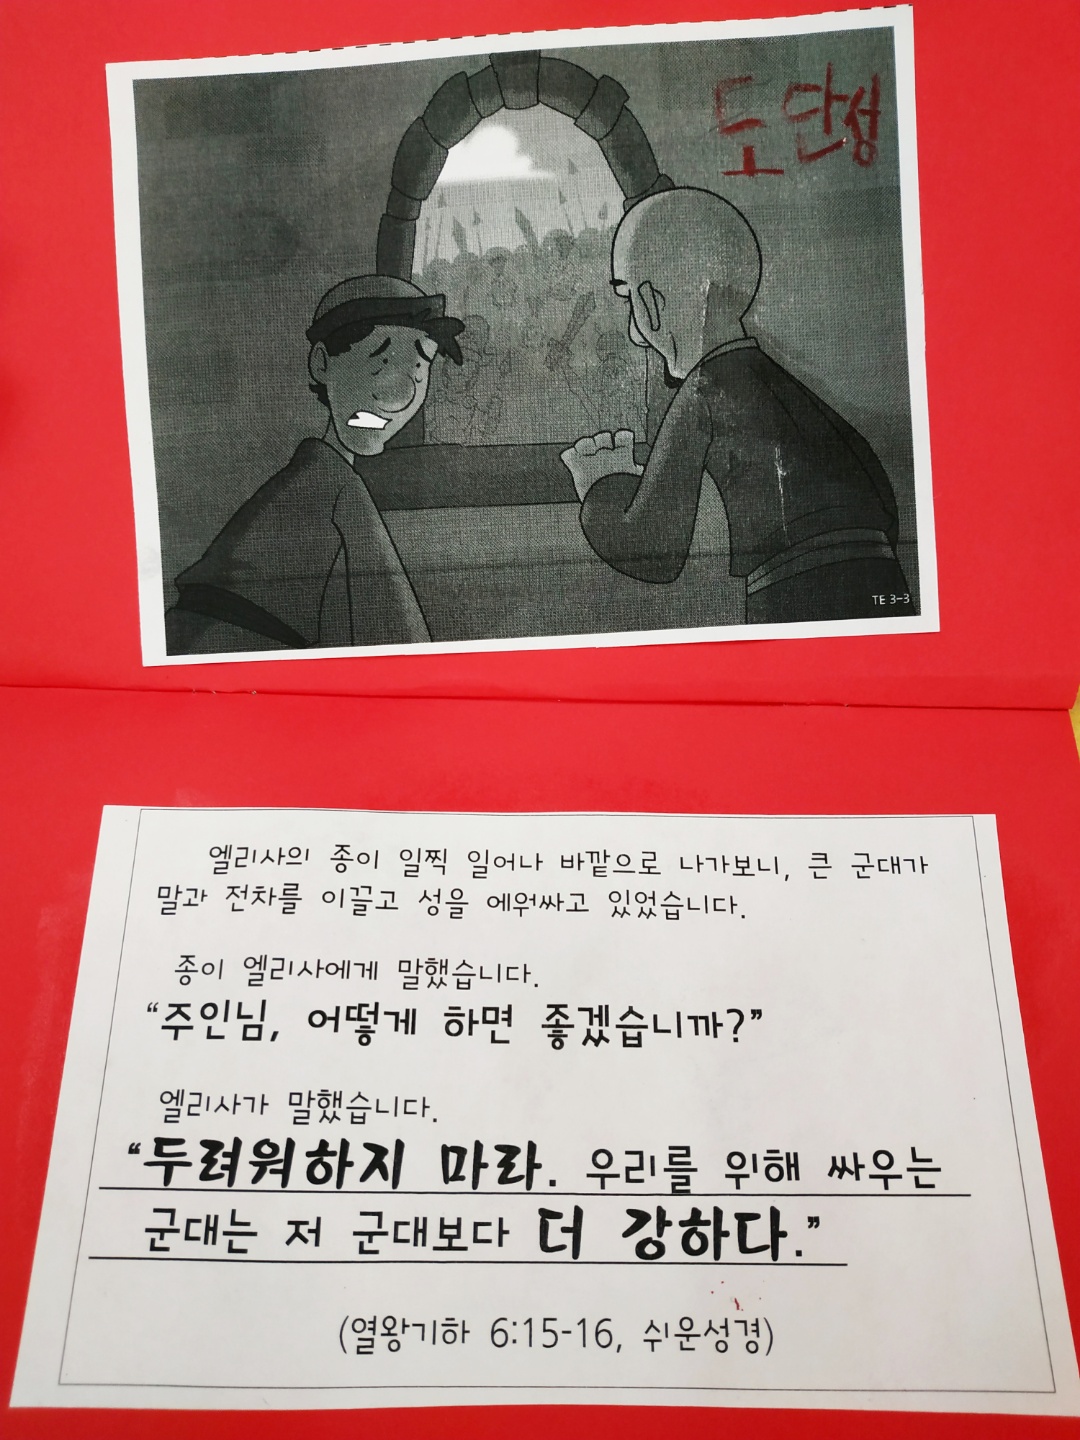 도단성
TE 3-3
엘리사의 종이 일찍 일어나 바깥으로 나가보니, 큰 군대가
말과 전차를 이끌고 성을 에워싸고 있었습니다.
종이 엘리사에게 말했습니다.
“주인님, 어떻게 하면 좋겠습니까?”
엘리사가 말했습니다.
“두려워하지 마라. 우리를 위해 싸우는
군대는 저 군대보다 더 강하다.”
(열왕기하 6:15-16, 쉬운성경)